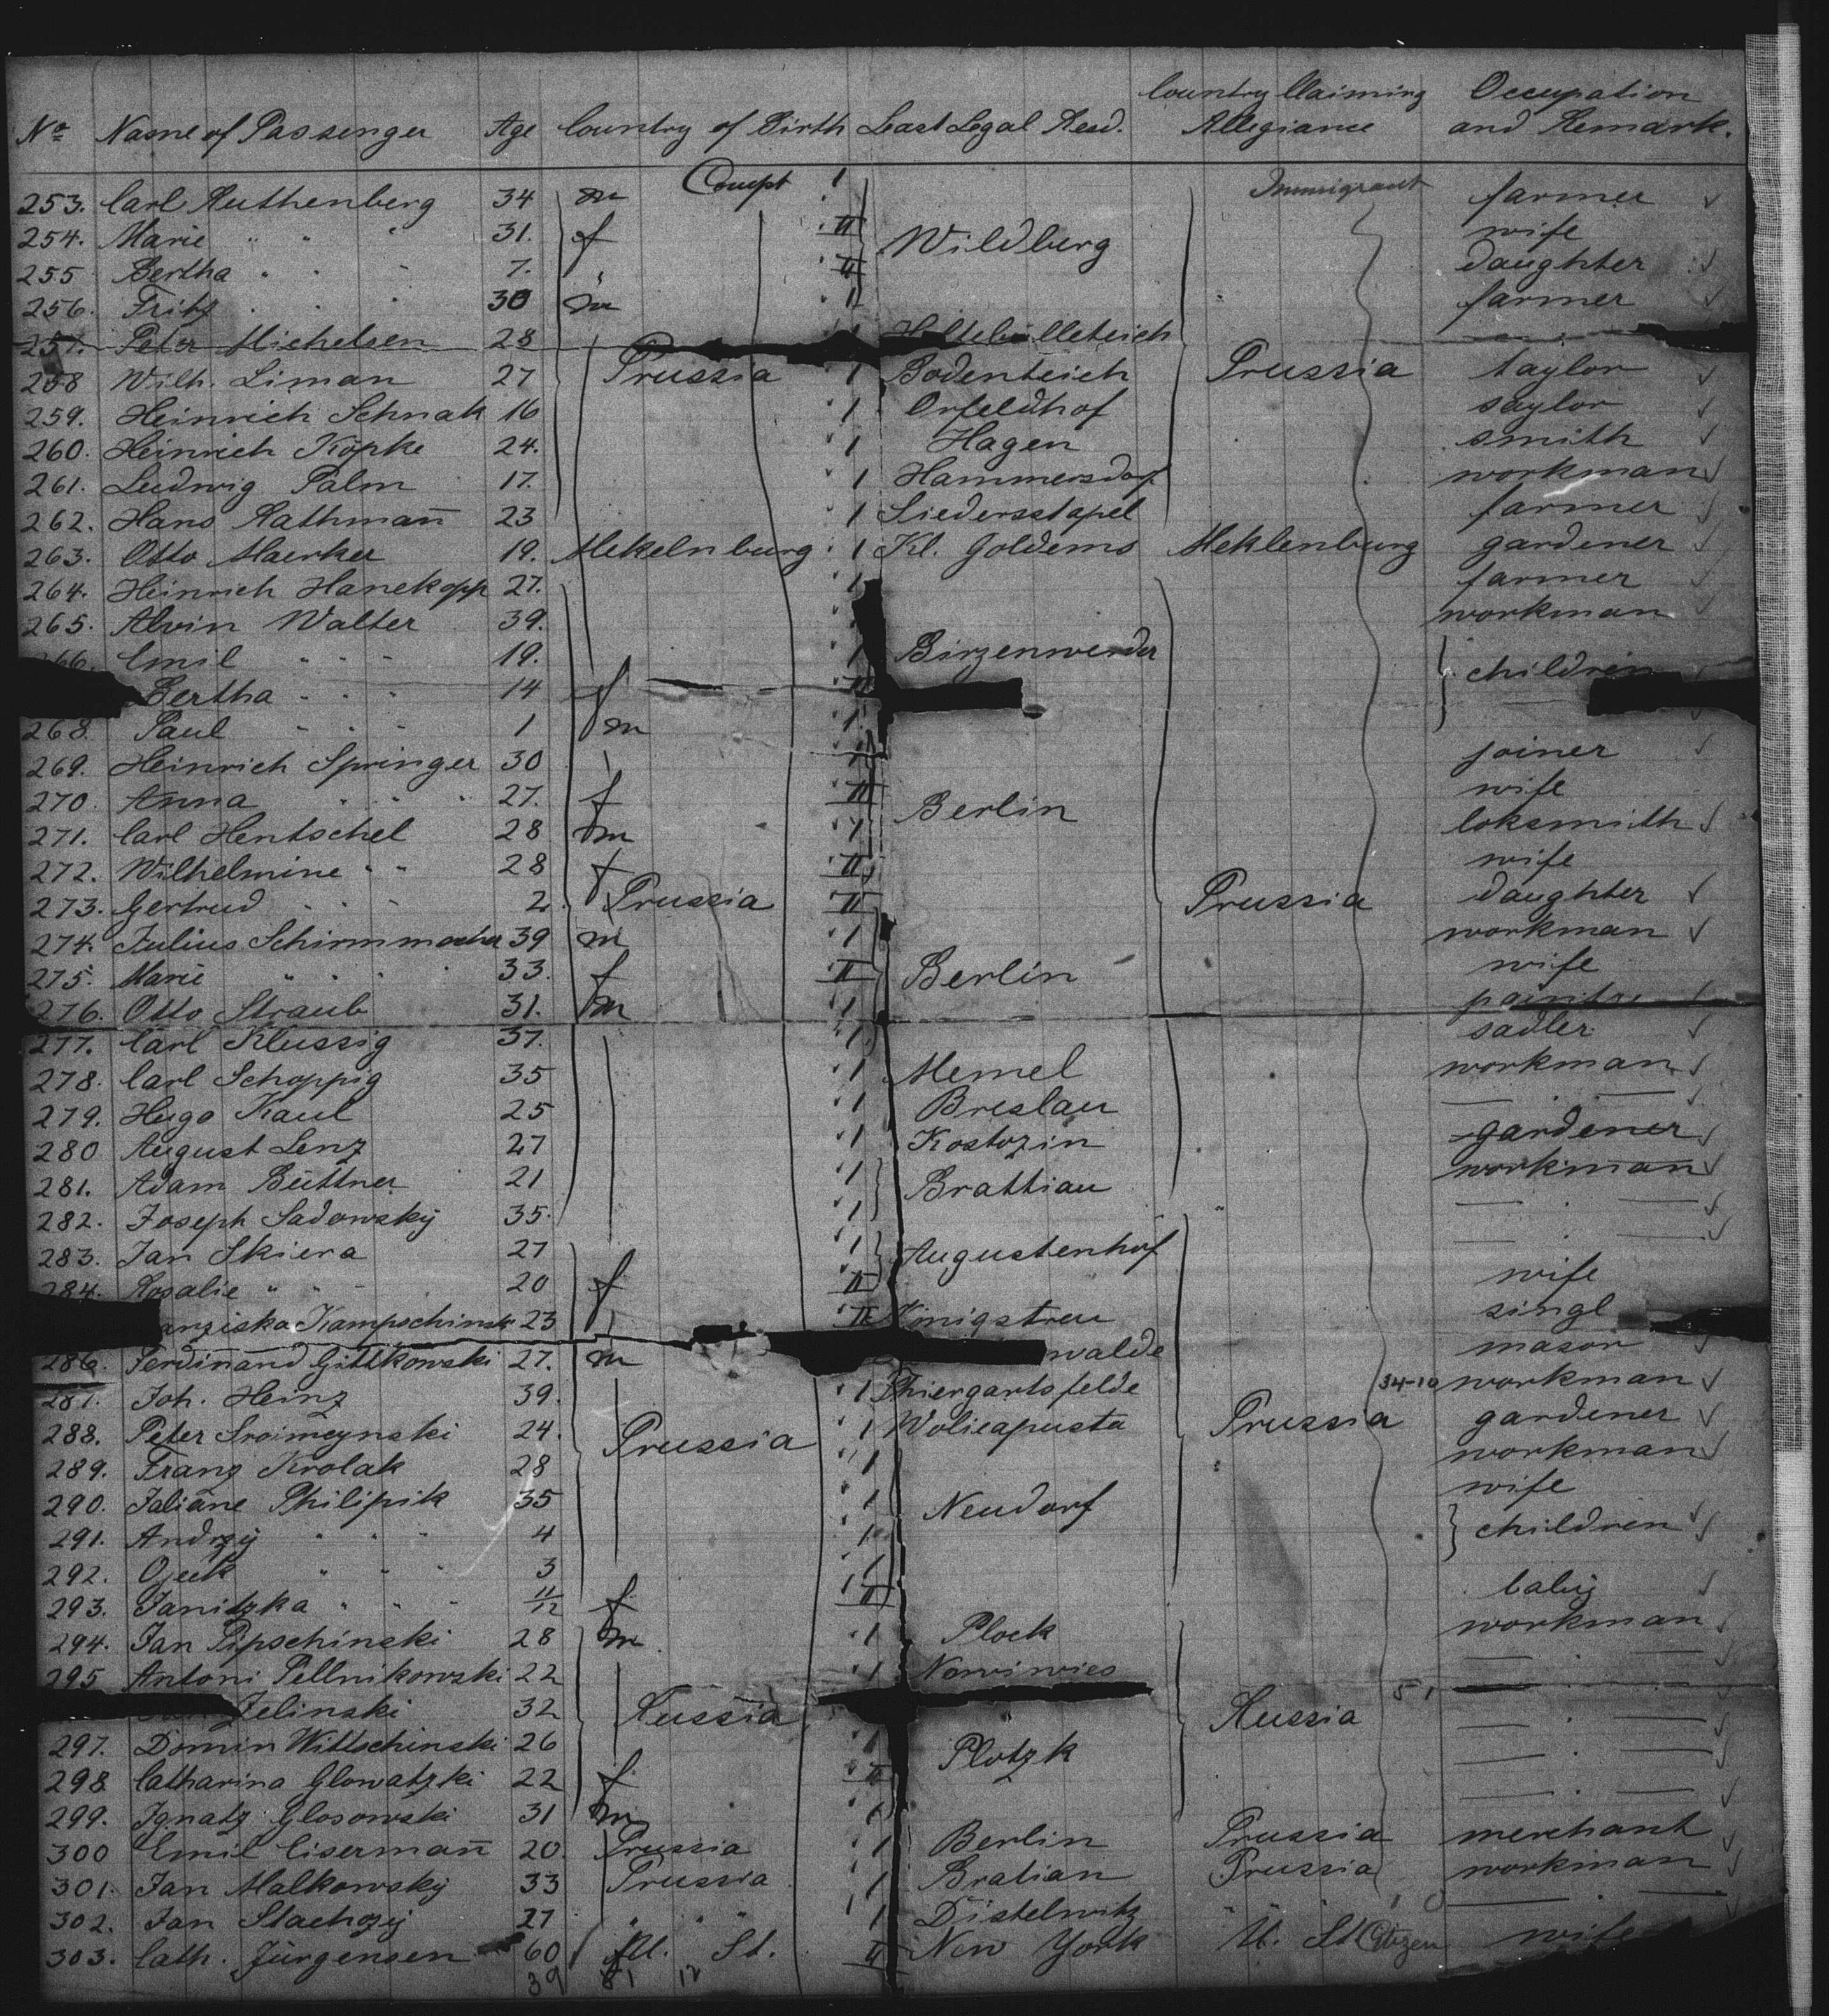 No Name of Passenger Age Country of Birth Last Legal Resd. Country Claiming Allegiance Occupation and Remark.
253. Carl Ruthenberg 34 m 1 Immigrant farmer ✓
254. Marie " " " 31. f II Wildburg wife
255 Bertha " " " 7. " II daughter ✓
256. Fritz " " " 30 m 1 farmer ✓
257. Peter Michelsen 28 1 — " —
258 Wilh. Liman 27 Prussia 1 Bodenteich Prussia taylor ✓
259. Heinrich Schnak 16 1 Orfeldhof saylor ✓
260. Heinrich Köpke 24. 1 Hagen smith ✓
261. Ludwig Palm 17. 1 Hammersdorf workman ✓
262. Hans Rathman̄ 23 1 Liedersstapel farmer ✓
263. Otto Maerker 19. Mekelnburg 1 Kl. Goldems Meklenburg gardener ✓
264. Heinrich Hanekopp 27. 1 farmer ✓
265. Alvin Walter 39. workman ✓
66. Emil " " " 19. 1 Birzenwerder } children
Bertha " " " 14 f II
268. Paul " " " 1 m 1 ✓
269. Heinrich Springer 30 1 joiner ✓
270. Anna " " " 27. f II Berlin wife
271. Carl Hentschel 28 m 1 loksmith ✓
272. Wilhelmine " " 28 f II wife
273. Gertrud " " " 2. Prussia II Prussia daughter ✓
274. Julius Schirmmacher 39 m 1 workman ✓
275. Marie " " " 33. f II Berlin wife
276. Otto Straub 31. m 1 ✓
277. Carl Klussig 37. 1 sadler ✓
278. Carl Schoppig 35 1 Memel workman ✓
279. Hugo Kaul 25 1 Breslau — . — ✓
280 August Lenz 27 1 Kostozin gardener ✓
281. Adam Büttner 21 1 } Brattian workman ✓
282. Joseph Sadowsky 35. 1 — . — ✓
283. Jan Skiera 27 1 } Augustenhof — . — ✓
284. Rosalie " " 20 f II wife
anziska Kampschinsk 23 II Königstreu singl
286. Ferdinand Gittkowski 27. m walde mason ✓
287. Joh. Heinz 39. 1 Thiergartsfelde 34-10 workman ✓
288. Peter 24. Prussia 1 Wolicapusta Prussia gardener ✓
289. Franz Krolak 28 1 workman ✓
290. Juliane Philipik 35 1 Neudorf wife
291. Andrzy " " " 4 1 } children ✓
292. " " " 3 1
293. Janitzka " " " 11/12 f II baby ✓
294. Jan Pipschinski 28 m 1 Plock workman ✓
295 Antoni Pellnikowski 22 1 — . — ✓
Jelinski 32 Russia 51 Russia — . — ✓
297. Domin Wittschinski 26 1 Plotzk — . — ✓
298. Catharina Glowatzki 22 f II — . — ✓
299. Ignatz Glosowski 31 m 1 — . — ✓
300 Emil Eiserman̄ 20. Prussia 1 Berlin Prussia merchant ✓
301. Jan Malkowsky 33 Prussia 1 Bratian Prussia workman ✓
302. Jan Stachozy 27 " " " 1 Distelwitz " " — . —
303. Cath. Jürgensen 60 U. St. II New York U. St Citizen wife
39 81 12